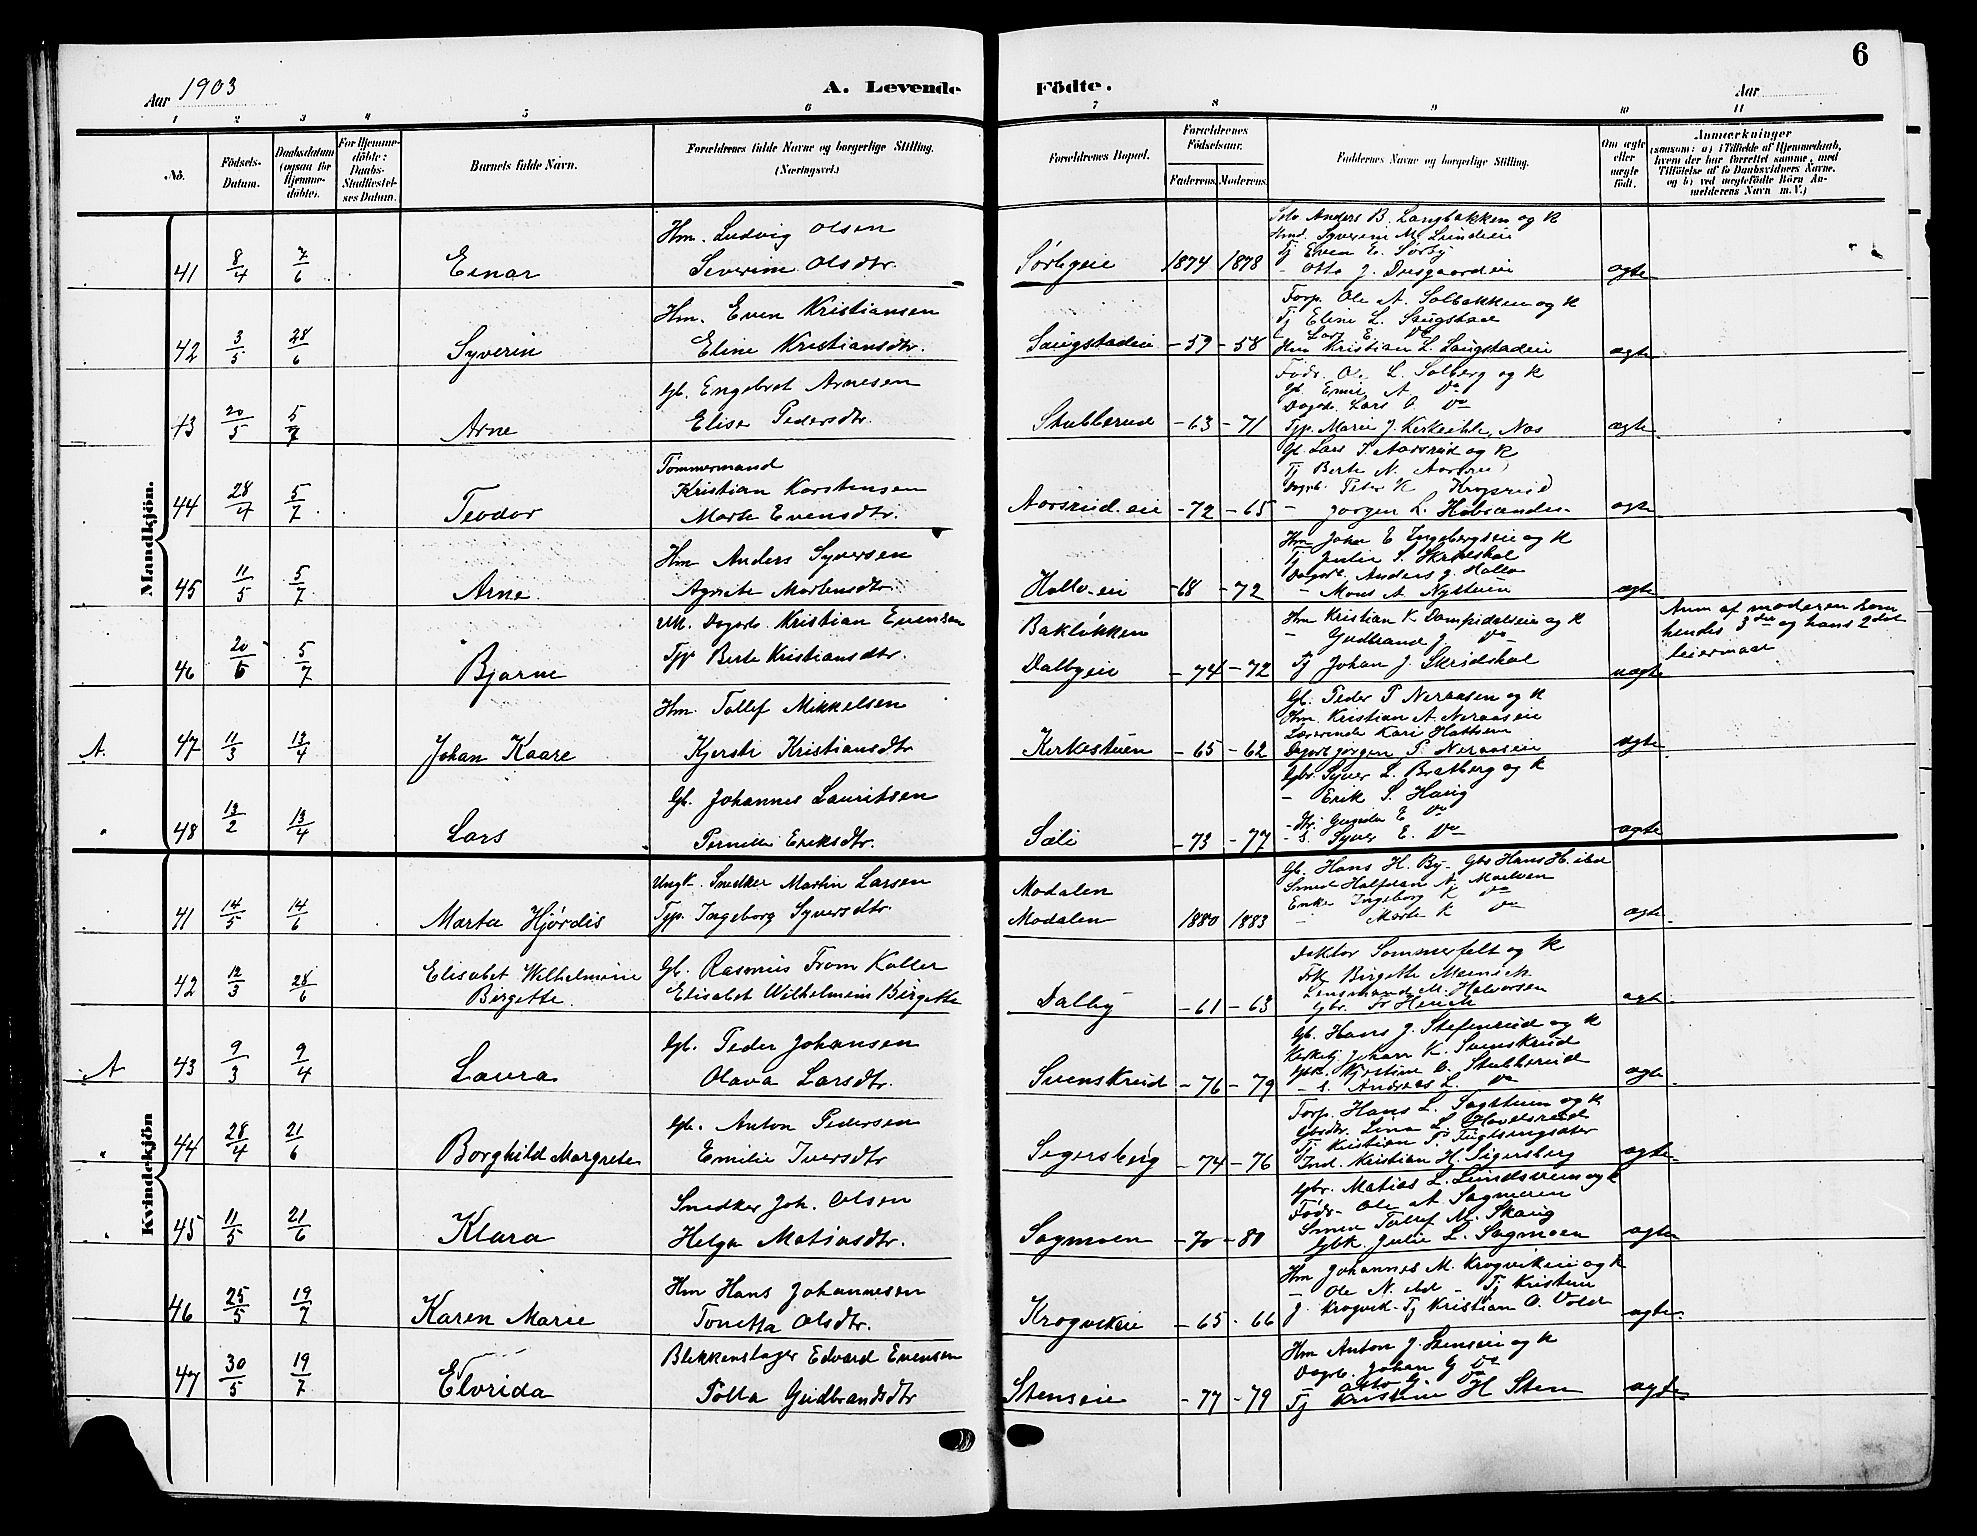 6
Aar 1903
A. Levende
Födte.
Aar
1 2 3 4 5 6 7 8 9 10 11
No.
Födsels-
Datum.
Daabsdatum
(ogsaa for
Hjemme-
döbte).
For Hjemme-
döbte:
Daabs-
Stadfæstel-
ses Datum.
Barnets fulde Navn.
Forældrenes fulde Navne og borgerlige Stilling.
(Næringsvei.)
Forældrenes Bopæl.
Forældrenes
Födselsaar.
Faderens. Moderens.
Faddernes Navne og borgerlige Stilling.
Om ægte
eller
uægte
født.
Anmærkninger
(saasom: a) i Tilfælde af Hjemmedaab,
hvem der har forrettet samme, med
Tilföielse af to Daabsvidners Navne,
og b) ved uægtefödte Börn An-
melderens Navn m. V.)
Mandkjön.
41 8/4 7/6 Einar
Hm. Ludvig Olsen
Severine Olsdtr.
Sørbyeie 1874 1878
Selv Anders B. Langbakken og K
Hmd. Syverine M. Lundeie
Tj Even E. Sørby
- Otto J. Disgaardeie
ægte
42 3/5 28/6 Syverin
Hm. Even Kristiansen
Eline Kristiansdtr.
Saugstadeie -59 -58
Forp. Ole A. Solbakken og K
Tj Eline L. Saugstad
- Lars E. Do
Hm Kristian L. Saugstadeie
ægte
43 20/5 5/7 Arne
Gb. Engebret Arnesen
Elise Pedersdtr.
Stubberud -63 -71
Føds. O. L. Solberg og K
Gb. Emil A Do
Dagarb. Lars O. Do
Typ. Marie J. Kirkeeble, Nas
ægte
44 28/4 5/7 Teodor
Tømmermand
Kristian Karstensen
Marte Evensdtr.
Aarsrud.eie -72 -65
Gb. Lars T. Aarsrud og K
Tj Berte N. Aarsrud
Dagarb. Peter K Krogsrud
- Jørgen L. Habrander
ægte
45 11/5 5/7 Arne.
Hm Anders Syversen
Agnete Mortensdtr.
Hollo.eie -68 -72
Hm John E Ingebergseie og K
Tj Julie S. Skredshol
Dagarb. Anders J. Hollo
- Mons A. Nystuen
ægte
46 20/5 5/7 Bjarne
M. Dagarb. Kristian Evensen
Typ Berte Kristiansdtr.
Bakløkken
Dalbyeie -74 -72
Hm Kristian K Dampidalseie og K
- Gudbrand J. Do
Tj Johan J. Skridshol
uægte
Anm af moderen som
hendes 3die og hans 2det
leiermaal
A. 47 11/3 13/4 Johan Kaare
Hm. Tollef Mikkelsen
Kjersti Kristiansdtr
Kirkestuen -65 -62
Gb. Peder P Neraasen og K
Hm. Kristian A. Neraaseie
Lærerinde Kari Hattsem
Dagarb Jørgen P. Neraaseie
ægte
" 48 12/2 13/4 Lars
Gb. Johannes Lauritsen
Pernille Eriksdtr.
Sæli -73 -77
Gbr. Syver L. Bratberg og K
- Erik S. Haug
- Dtr. Gunda E Do
- S. Syver E. Do
ægte
Kvindekjön
41 14/5 14/6 Marta Hjørdis
Ungk. Snedker Martin Larsen
Typ. Ingeborg Syversdtr.
Modalen
Modalen 1880 1883
Gb. Hans H. By- Gbs Hans H. ibd
Smed Halfdan N. Moelven
Enke Ingeborg K Do
- Marte K Do
ægte
42 12/3 28/6 Elisabet Wilhelmine
Birgette.
Gb. Rasmus From Koller
Elisabet Wilhelmine Birgette
Dalby -61 -63
Doktor Sommerfelt og K
Frk Birgette Mœnich
Lensmand M. Halvorsen
Gbr. Fr Hench
ægte
A 43 9/3 9/4 Laura
Gb. Peder Johansen
Olava Larsdtr.
Svenskrud -76 -79
Gb. Hans J. Stefenrud og K
Kirketj. Johan K. Svenskrud
Gbk. Kjerstine O. Stubberud
- S. Andreas L. Do
ægte
" 44 28/4 21/6 Borghild Margrete
Gb. Anton Pedersen
Emilie Iversdtr
Segersberg -74 -76
Forp. Hans L. Sagstuen og K
Gbsdtr. Lina L. Hovelsrud
Tj Kristian P. Fuglsingsæter
Ind. Kristian H. Sigersberg
ægte
" 45 11/5 21/6 Klara
Snedker Joh. Olsen
Helga Matiasdtr.
Sagmoen -70 -80
Gbr. Matias L. Lundsveen og K
Føds- Ole A Sagmoen
Smed Tollef M. Skaug
Gbk. Julie L. Sagmoen
ægte
46 25/5 19/7 Karen Marie
Hm Hans Johannesen
Tonetta Olsdtr.
Krogvikeie -65 -66
Hm Johannes M. Krogvikeie og K
- Ole N. ibd - Tj Kristine
J. Krogvik - Tj Kristian O. Vold
ægte
47 30/5 19/7 Elvrida
Blikkenslager Edvard Evensen
Polla Gudbrandsdtr
Stenseie -77 -79
Hm Anton J. Stenseie og K
Dagarb. Johan G Do
Otto G. Do
Tj Kristine H Sten
ægte